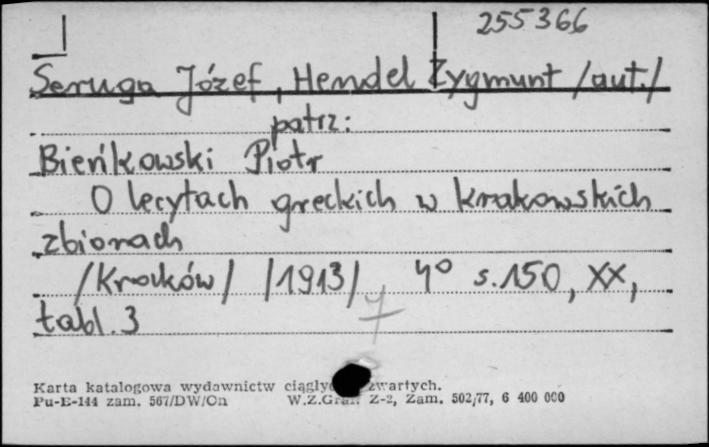 255366
Seruga Józef, Hendel Zygmunt /aut./
patrz:
Bieńkowski Piotr
O lecytach greckich w krakowskich
zbiorach
/Kraków/ /1913/, 4° s.150, XX,
tabl. 3
Karta katalogowa wydawnictw zwartych.
Pu-E-144 zam. 567/DW/Cn W.Z.Graf. Z-2, Zam. 502/77, 6 400 000